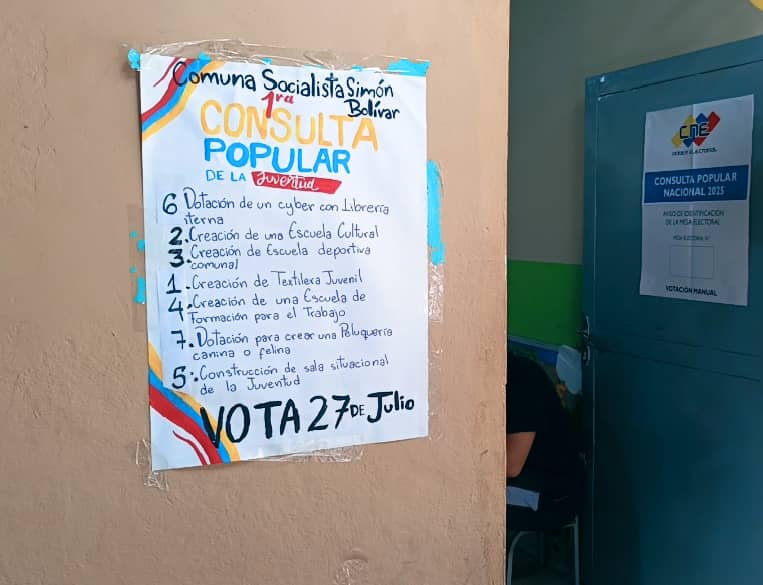 Comuna Socialista Simón
Bolívar
1ra
CONSULTA
POPULAR
DE LA Juventud
6 Dotación de un cyber con Librería
iterna
2. Creación de una Escuela Cultural
3. Creación de Escuela deportiva
comunal
1. Creación de Textilera Juvenil
4. Creación de una Escuela de
Formación para el Trabajo
7. Dotación para crear una Peluquería
canina o felina
5. Construcción de sala situacional
de la Juventud
VOTA 27 DE Julio
CNE
PODER ELECTORAL
CONSULTA POPULAR
NACIONAL 2025
AVISO DE IDENTIFICACIÓN
DE LA MESA ELECTORAL
MESA ELECTORAL N°
VOTACIÓN MANUAL